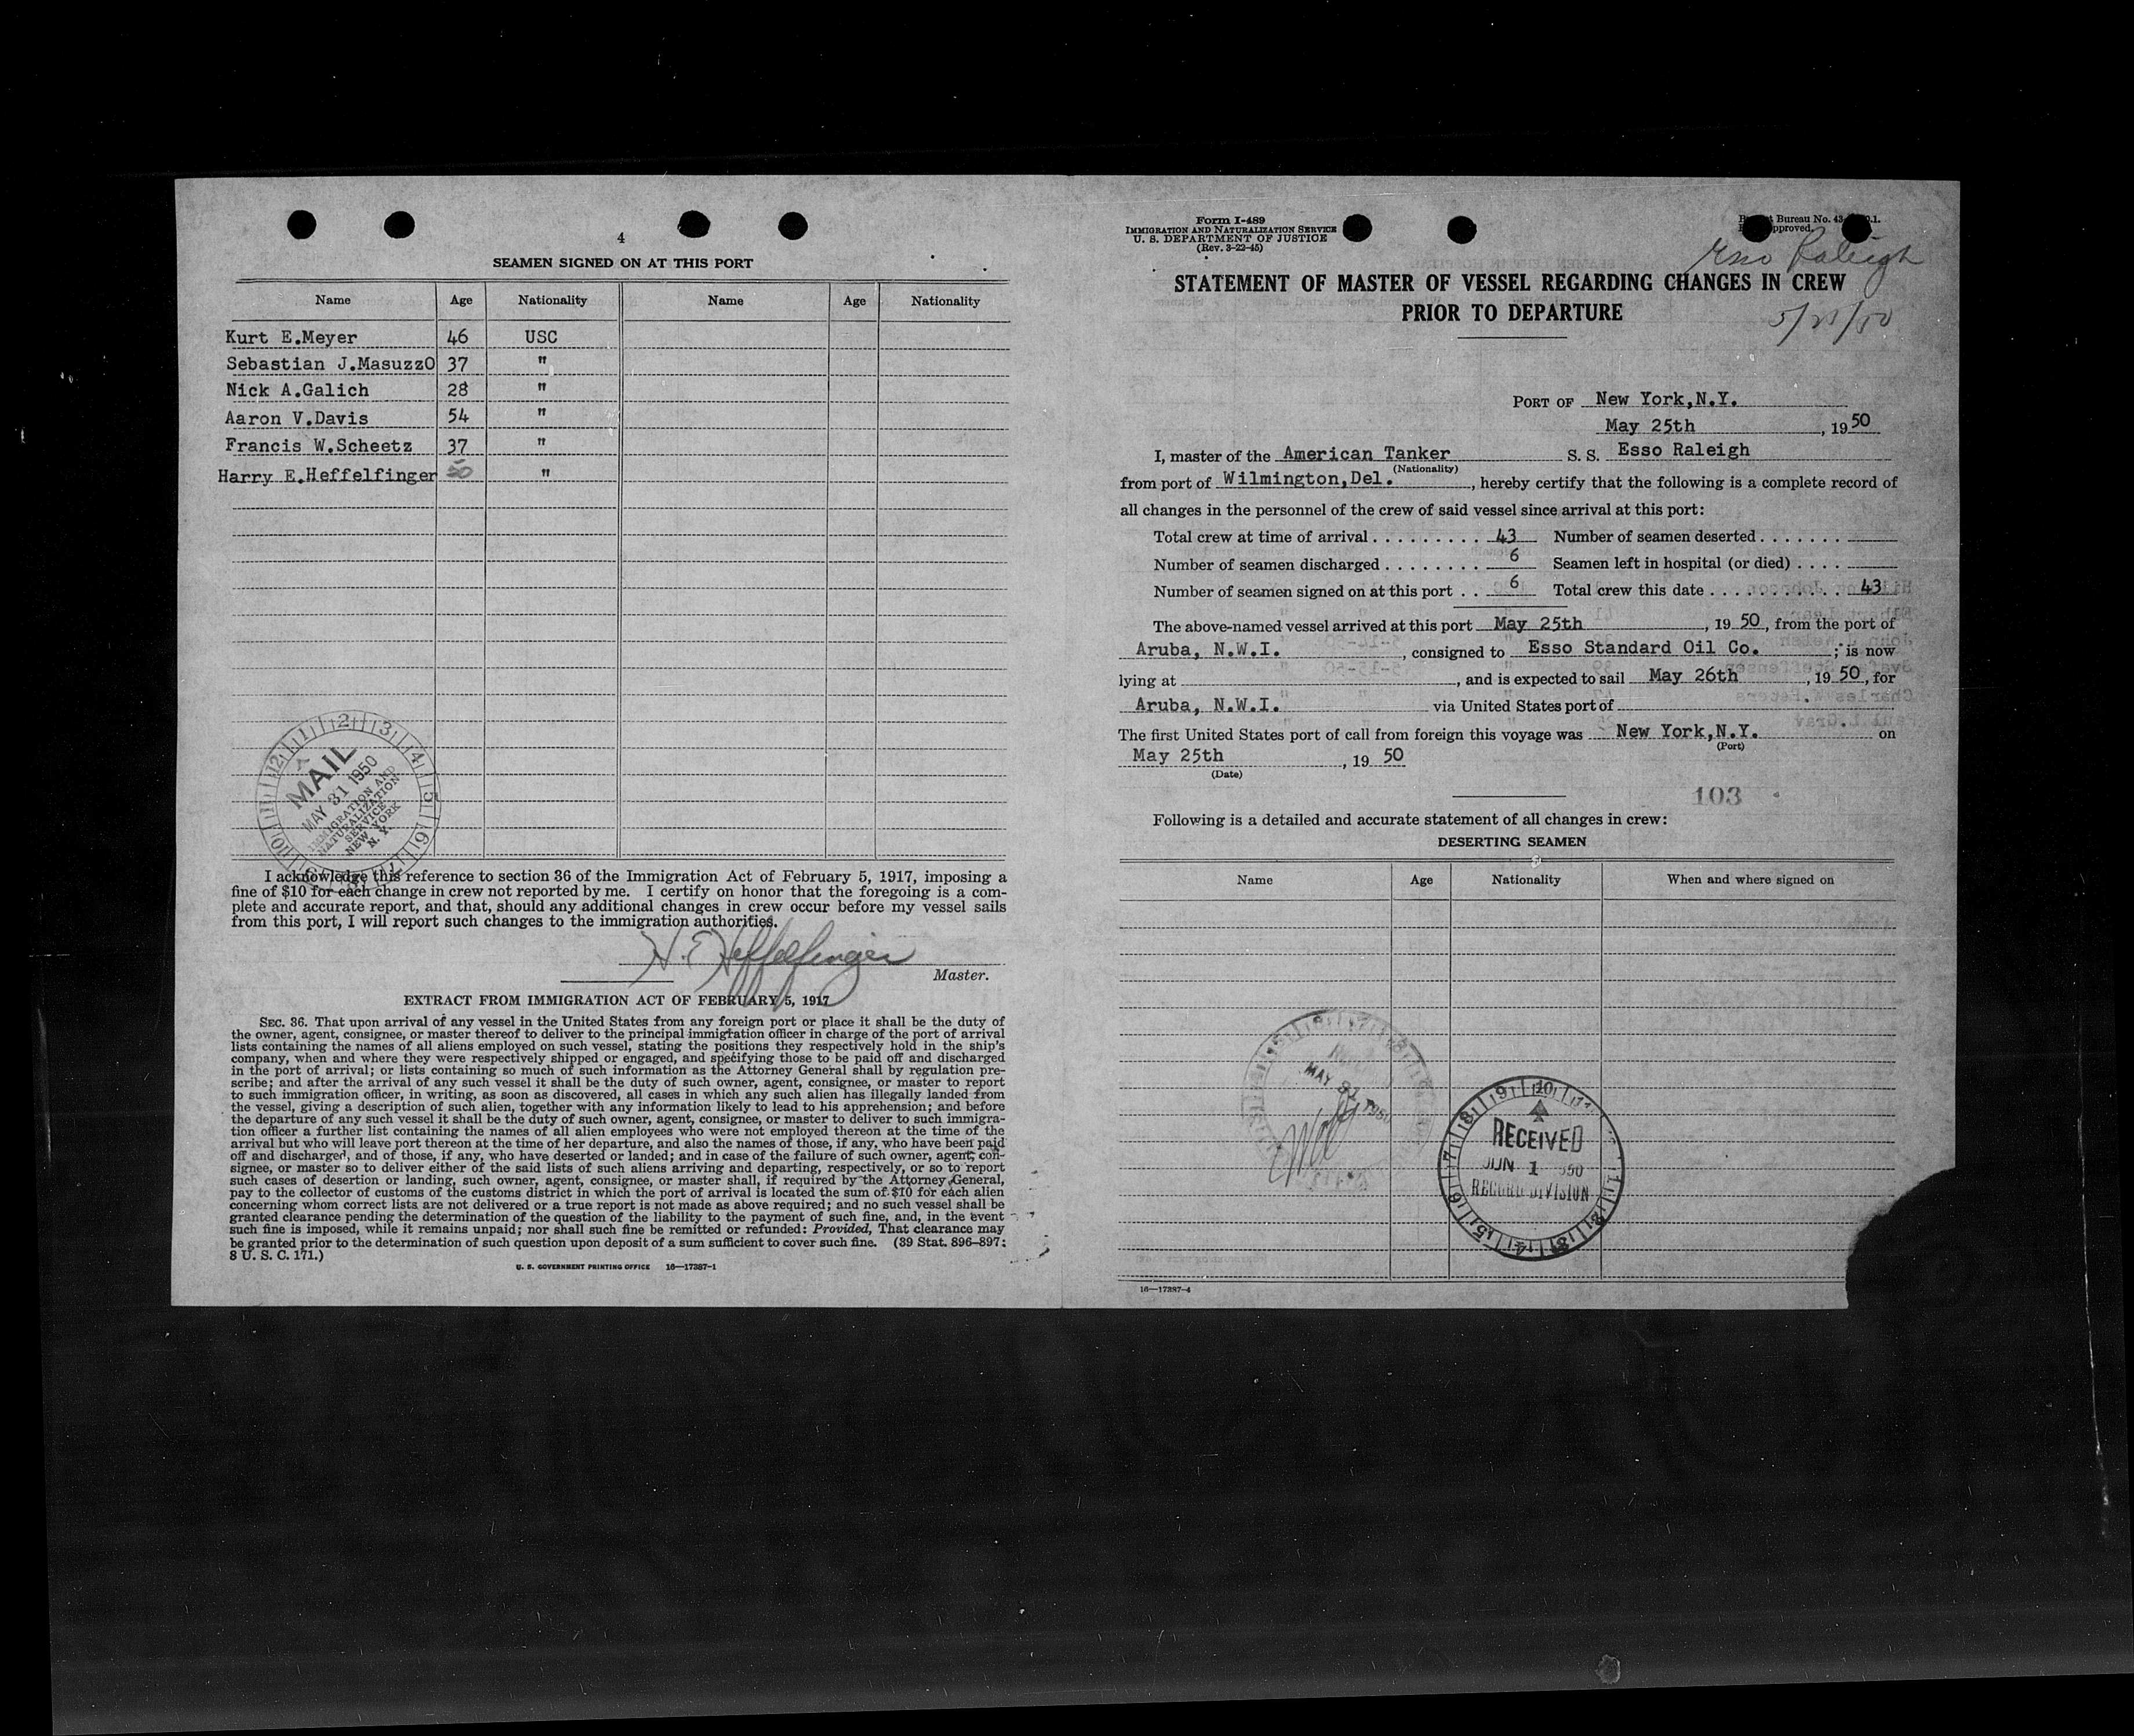 4
SEAMEN SIGNED ON AT THIS PORT
Name Age Nationality Name Age Nationality
Kurt E.Meyer 46 USC
Sebastian J.MasuzzO 37 "
Nick A.Galich 28 "
Aaron V.Davis 54 "
Francis W.Scheetz 37 "
Harry E.Heffelfinger 50 "
MAIL
MAY 31 1950
IMMIGRATION AND
NATURALIZATION
SERVICE
NEW YORK
N. Y.
I acknowledge this reference to section 36 of the Immigration Act of February 5, 1917, imposing a
fine of $10 for each change in crew not reported by me. I certify on honor that the foregoing is a com-
plete and accurate report, and that, should any additional changes in crew occur before my vessel sails
from this port, I will report such changes to the immigration authorities.
H. E. Heffelfinger
Master.
EXTRACT FROM IMMIGRATION ACT OF FEBRUARY 5, 1917
SEC. 36. That upon arrival of any vessel in the United States from any foreign port or place it shall be the duty of
the owner, agent, consignee, or master thereof to deliver to the principal immigration officer in charge of the port of arrival
lists containing the names of all aliens employed on such vessel, stating the positions they respectively hold in the ship's
company, when and where they were respectively shipped or engaged, and specifying those to be paid off and discharged
in the port of arrival; or lists containing so much of such information as the Attorney General shall by regulation pre-
scribe; and after the arrival of any such vessel it shall be the duty of such owner, agent, consignee, or master to report
to such immigration officer, in writing, as soon as discovered, all cases in which any such alien has illegally landed from
the vessel, giving a description of such alien, together with any information likely to lead to his apprehension; and before
the departure of any such vessel it shall be the duty of such owner, agent, consignee, or master to deliver to such immigra-
tion officer a further list containing the names of all alien employees who were not employed thereon at the time of the
arrival but who will leave port thereon at the time of her departure, and also the names of those, if any, who have been paid
off and discharged, and of those, if any, who have deserted or landed; and in case of the failure of such owner, agent, con-
signee, or master so to deliver either of the said lists of such aliens arriving and departing, respectively, or so to report
such cases of desertion or landing, such owner, agent, consignee, or master shall, if required by the Attorney General,
pay to the collector of customs of the customs district in which the port of arrival is located the sum of $10 for each alien
concerning whom correct lists are not delivered or a true report is not made as above required; and no such vessel shall be
granted clearance pending the determination of the question of the liability to the payment of such fine, and, in the event
such fine is imposed, while it remains unpaid; nor shall such fine be remitted or refunded: Provided, That clearance may
be granted prior to the determination of such question upon deposit of a sum sufficient to cover such fine. (39 Stat. 896-897;
8 U. S. C. 171.)
U. S. GOVERNMENT PRINTING OFFICE 16—17387-1
Form I-489
IMMIGRATION AND NATURALIZATION SERVICE
U. S. DEPARTMENT OF JUSTICE
(Rev. 3-22-45)
Bureau No. 43
pproved.
Esso Raleigh
STATEMENT OF MASTER OF VESSEL REGARDING CHANGES IN CREW
PRIOR TO DEPARTURE
PORT OF New York,N.Y.
May 25th, 1950
I, master of the American Tanker S. S. Esso Raleigh
(Nationality)
from port of Wilmington,Del., hereby certify that the following is a complete record of
all changes in the personnel of the crew of said vessel since arrival at this port:
Total crew at time of arrival . . . . . . . . . 43 Number of seamen deserted . . . . . . .
Number of seamen discharged . . . . . . . . 6 Seamen left in hospital (or died) . . . .
Number of seamen signed on at this port . . 6 Total crew this date . . . . . . . . . . . 43
The above-named vessel arrived at this port May 25th, 1950, from the port of
Aruba, N.W.I., consigned to Esso Standard Oil Co.; is now
lying at , and is expected to sail May 26th, 1950, for
Aruba, N.W.I. via United States port of
The first United States port of call from foreign this voyage was New York,N.Y. on
(Port)
May 25th, 19 50
(Date)
103
Following is a detailed and accurate statement of all changes in crew:
DESERTING SEAMEN
Name Age Nationality When and where signed on
MAY 31 1950
RECEIVED
JUN 1 1950
RECORD DIVISION
16—17387-4